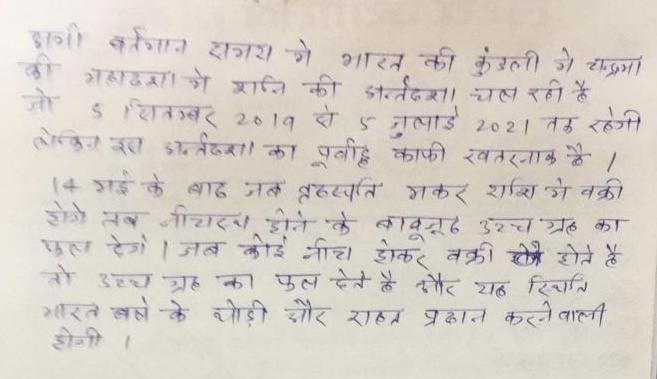 अभी वर्तमान समय मे भारत की कुंडली मे चन्द्रमा
की महादशा मे शनि की अर्न्तदशा चल रही है
जो 5 सितम्बर 2019 से 5 जुलाई 2021 तक रहेगी
लेकिन इस अर्न्तदशा का पूर्वाद्ध काफी खतरनाक है ।
14 मई के बाद जब बृहस्पति मकर राशि मे वक्री
होंगे तब नीचस्थ होने के बावजूद उच्च ग्रह का
फल देंगे । जब कोई नीच होकर वक्री होते है
तो उच्च ग्रह का फल देते है और यह स्थिति
भारत वर्ष के थोड़ी और राहत प्रदान करने वाली
होगी ।